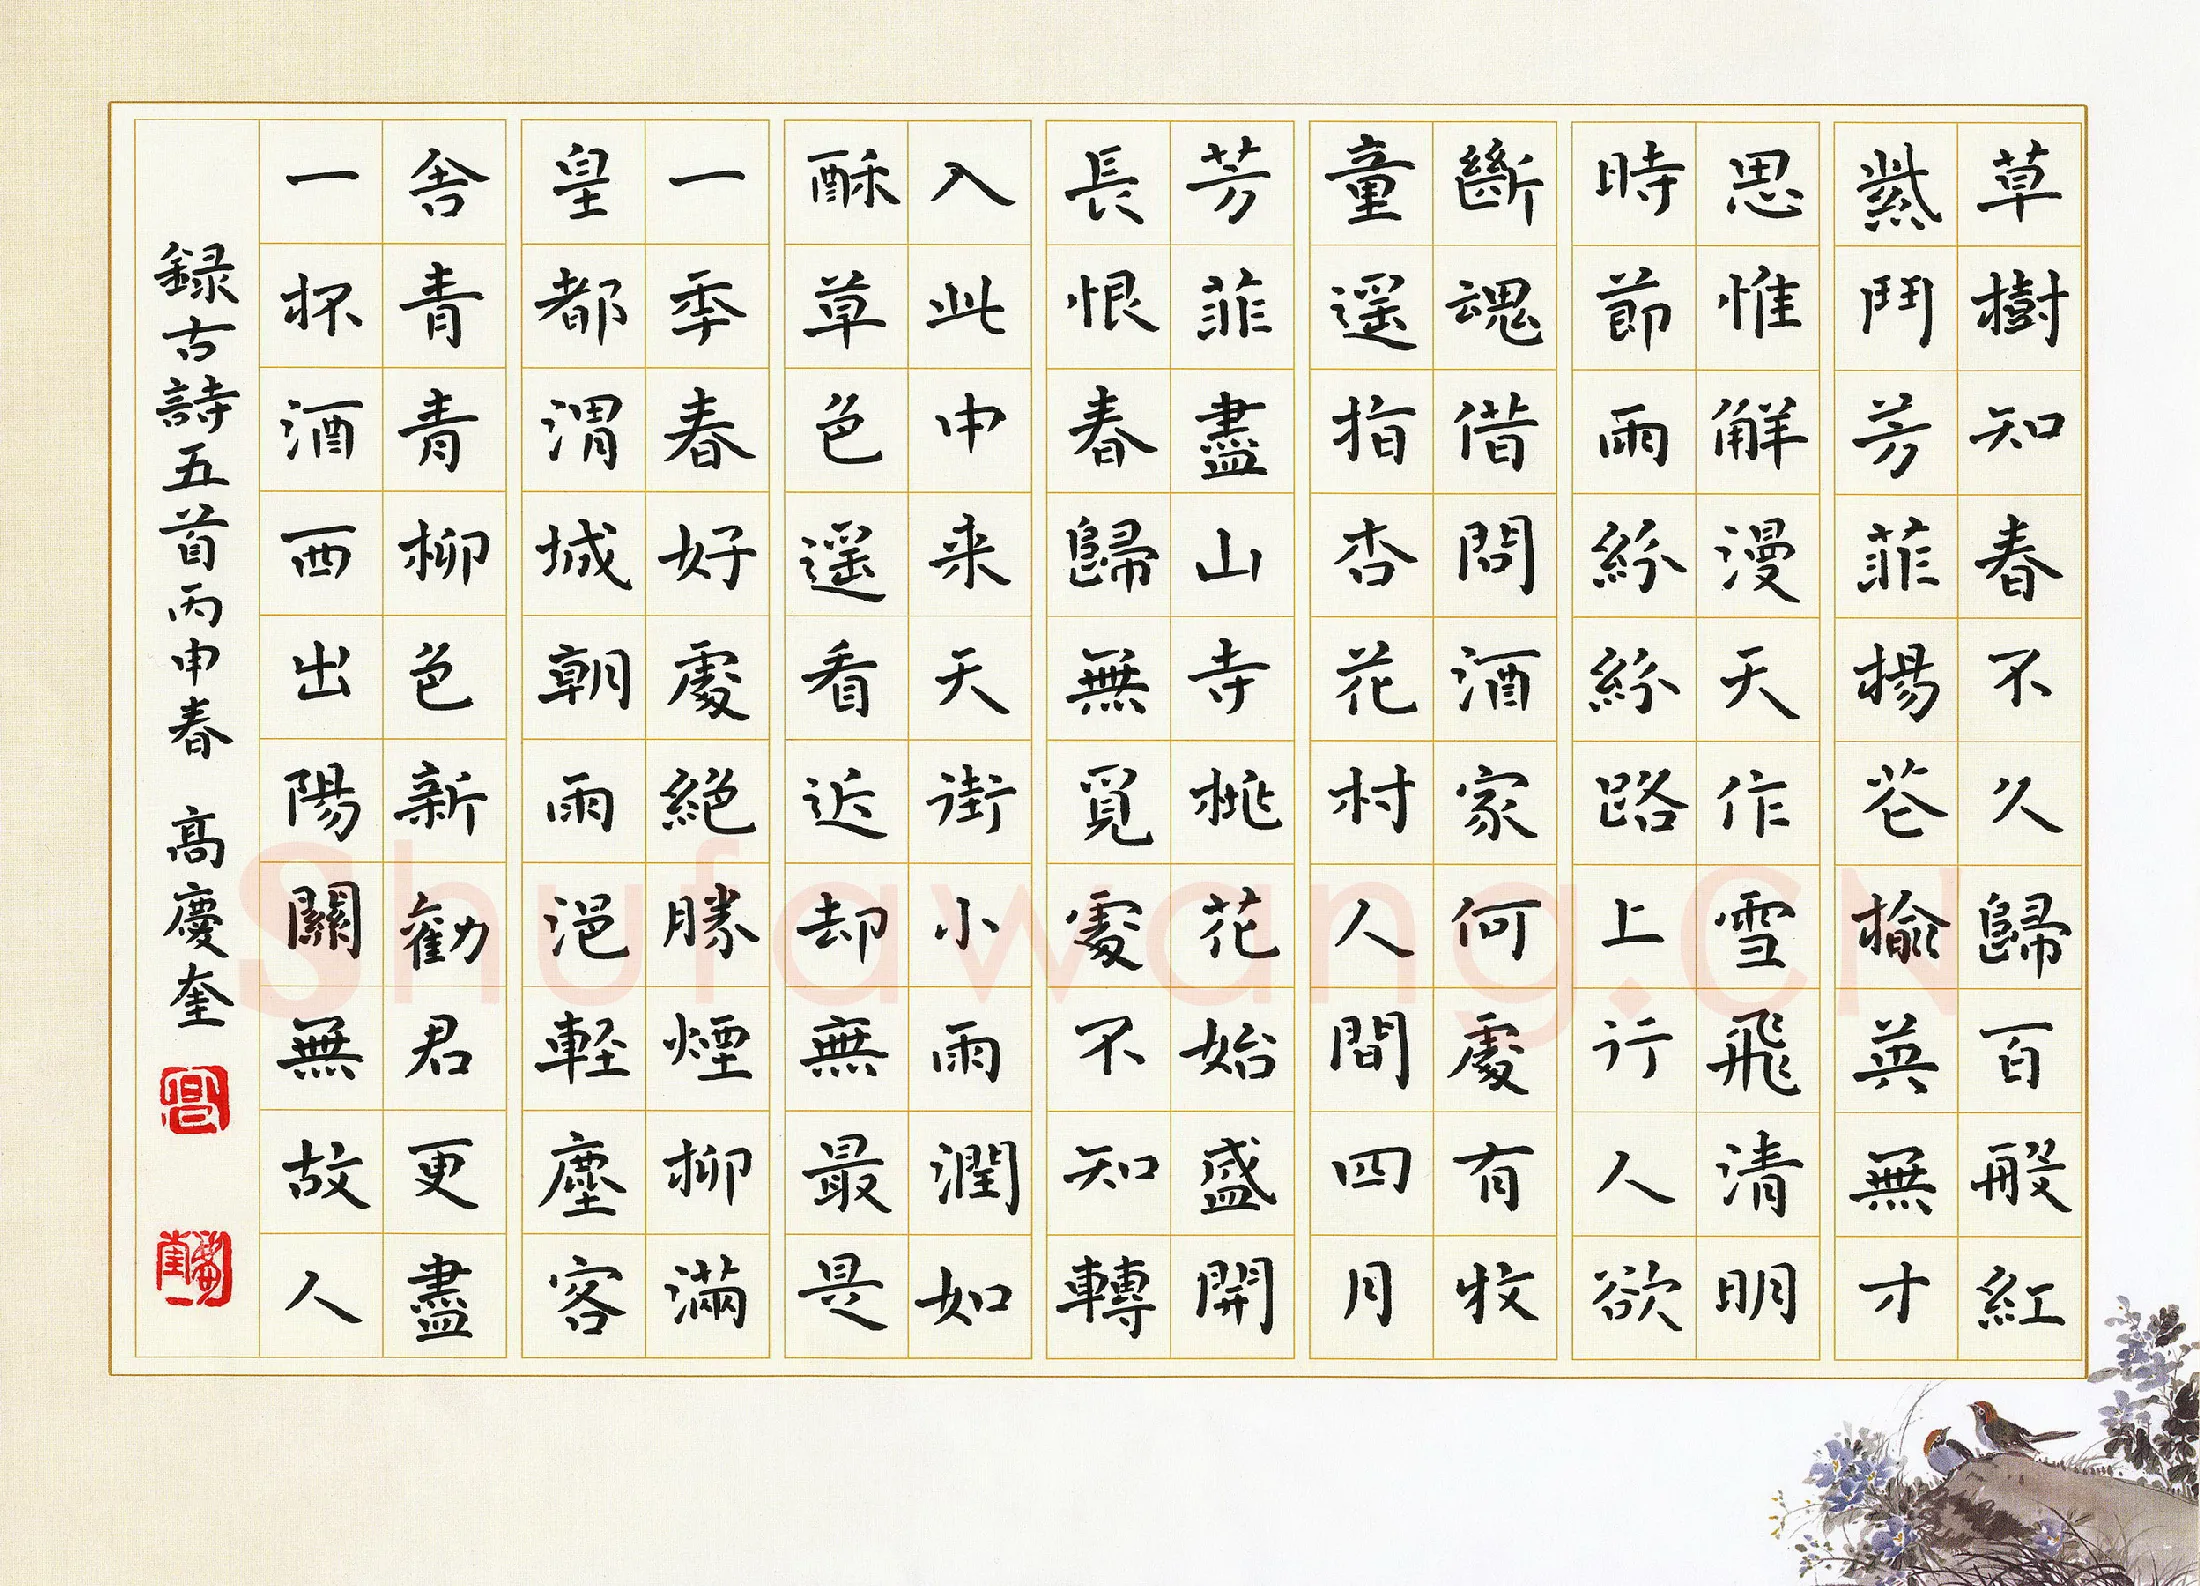 草樹知春不久歸百般紅
紫鬥芳菲楊花榆英無才
思惟解漫天作雪飛清明
時節雨紛紛路上行人欲
斷魂借問酒家何處有牧
童遥指杏花村人間四月
芳菲盡山寺桃花始盛開
長恨春歸無覓處不知轉
入此中来天街小雨潤如
酥草色遥看近却無最是
一秊春好處絕勝煙柳滿
皇都渭城朝雨浥輕塵客
舍青青柳色新勸君更盡
一杯酒西出陽關無故人
録古詩五首丙申春 高慶奎
高
Shufawang.CN